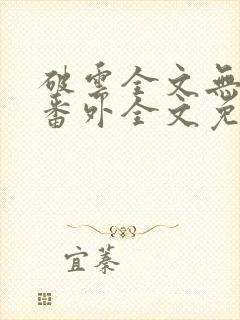 破云全文無
番外全文免
宜蓁